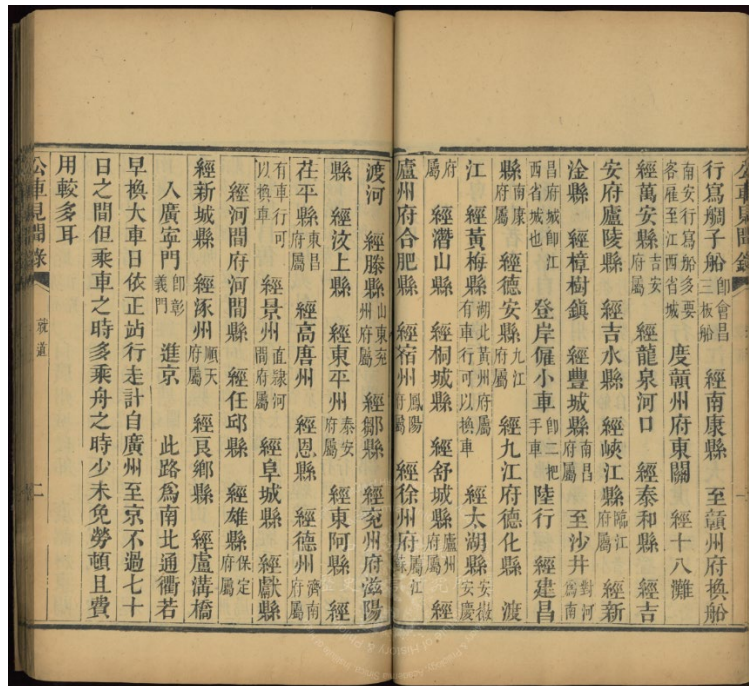 公車見聞錄
行寫艒子船 卽會昌三板船 經南康縣 至贛州府換船
南安行寫船多要客雇至江西省城 度贛州府東關 經十八灘
經萬安縣 吉安府屬 經龍泉河口 經泰和縣 經吉
安府廬陵縣 經吉水縣 經峽江縣 臨江府屬 經新
淦縣 經樟樹鎭 經豐城縣 南昌府屬 至沙井 對河爲南
昌府城卽江西省城也 登岸僱小車 卽二把手車 陸行 經建昌
縣 南康府屬 經德安縣 九江府屬 經九江府德化縣 渡
江 經黃梅縣 湖北黃州府屬有車行可以換車 經太湖縣 安徽安慶
府屬 經潛山縣 經桐城縣 經舒城縣 廬州府屬 經
廬州府合肥縣 經宿州 鳳陽府屬 經徐州府 屬江蘇
渡河 經滕縣 山東兗州府屬 經鄒縣 經兗州府滋陽
縣 經汶上縣 經東平州 泰安府屬 經東阿縣 經
茌平縣 東昌府屬 經高唐州 經恩縣 經德州 濟南府屬
有車行可以換車 經景州 直隸河間府屬 經阜城縣 經獻縣
經河間府河間縣 經任邱縣 經雄縣 保定府屬
經新城縣 經涿州 順天府屬 經良鄉縣 經盧溝橋
入廣寧門 卽彰義門 進京 此路爲南北通衢若
早換大車日依正站行走計自廣州至京不過七十
日之間但乘車之時多乘舟之時少未免勞頓且費
用較多耳
公車見聞錄 就道 二